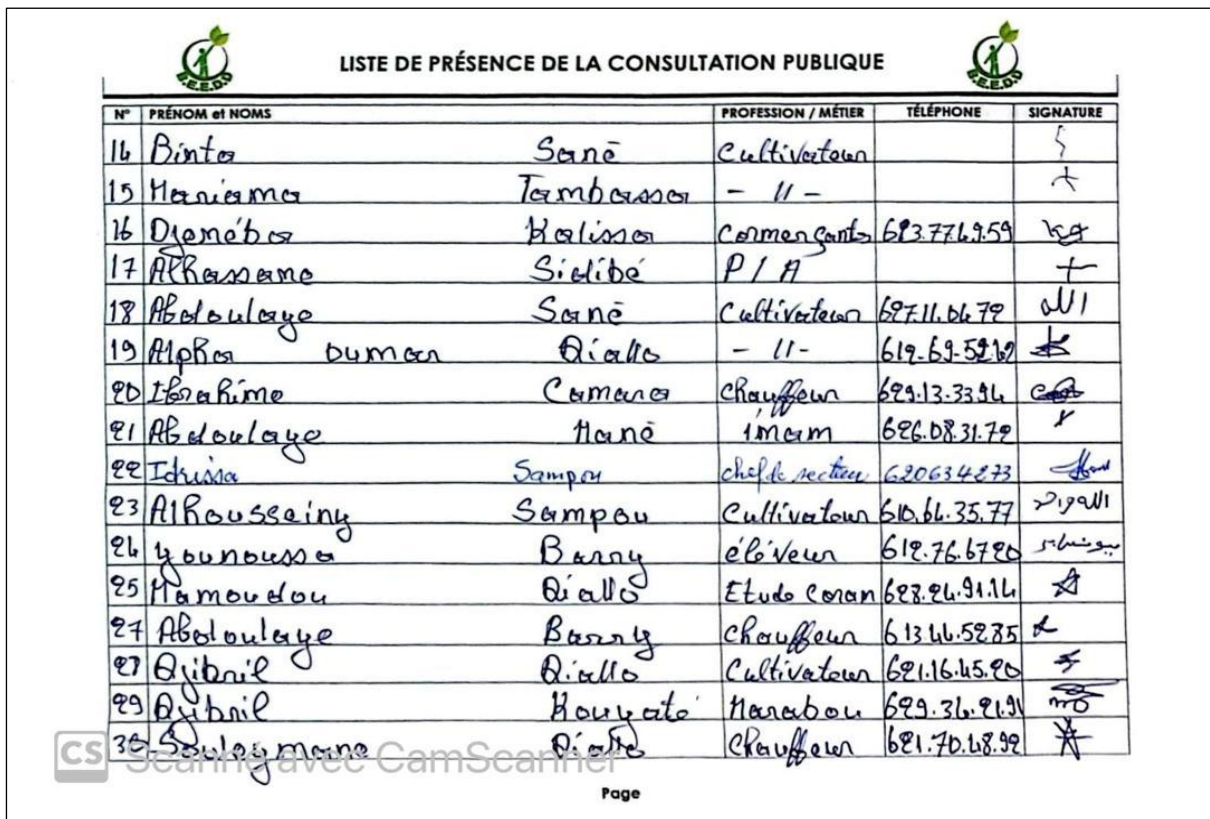 LISTE DE PRÉSENCE DE LA CONSULTATION PUBLIQUE
N° PRÉNOM et NOMS PROFESSION / MÉTIER TÉLÉPHONE SIGNATURE
14 Binta Sané Cultivateur
15 Mariama Tambassa - 11 -
16 Djenéba Kalissa Commerçante
17 Alhassane Sidibé P/A
18 Abdoulaye Sané Cultivateur 627.11.04.72 الله
19 Alpha Oumar Diallo - 11-
20 Ibrahima Camara Chauffeur 629.13.33.94
21 Abdoulaye Mané imam 626.08.31.72
22 Idrissa Sampou chef de secteur 620634273
23 Alhousseiny Sampou Cultivateur 610.64.35.77
24 Younoussa Barry éléveur 612.76.67.20
25 Mamoudou Diallo Etude Coran 628.24.91.14
27 Abdoulaye Barry Chauffeur 613.44.52.85
27 Djibril Diallo Cultivateur 621.16.45.20
29 Djibril Kouyaté Marabou 629.34.21.91
30 Souleymane Diallo Chauffeur 621.70.48.92
CS Scanné avec CamScanner
Page